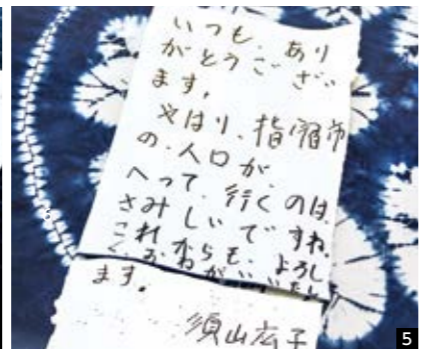 いつも、あり
がとうござい
ます。
やはり、指宿市
の、人口が、
へって、行くのは、
さみしいですね。
これからも、よろし
く、おねがいいたし
ます。
須山広子
5